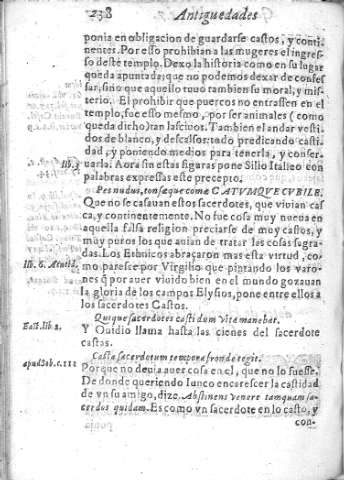 238 Antiguedades
ponia en obligacion de guardarse castos, y conti-
nentes. Por esso prohibian a las mugeres el ingres-
so deste templo. Dexo la historia como en su lugar
queda apuntada; que no podemos dexar de confes-
sar, sino que aquello tuuo tambien su moral, y mis-
terio. El prohibir que puercos no entrassen en el
templo, fue esso mesmo, por ser animales (como
queda dicho) tan lasciuos. Tambien el andar vesti-
dos de blanco, y descalsos: todo predicando castid-
dad, y poniendo medios para tenerla, y conser-
lib. 3 uarla. Aora sin estas figuras pone Silio Italico con
palabras expressas este precepto.
Pes nudus, tonsæque comæ CATVMQVE CVBILE.
Que no se casauan estos sacerdotes, que viuian cas-
ca, y continentemente. No fue cosa muy nueua en
aquella falsa religion preciarse de muy castos, y
muy puros los que auian de tratar las cosas sagra-
das. Los Ethnicos abraçaron mas esta virtud, co-
lib. 6. Æneid. mo parece por Virgilio que pintando los varo-
nes q̃ por auer viuido bien en el mundo gozauan
la gloria de los campos Elysios, pone entre ellos a
los sacerdotes Castos.
Quique sacerdotes casti dum vita manebat.
Fast. lib. 2. Y Ouidio llama hasta las cienes del sacerdote
castas.
Casta sacerdotum tempora fronde tegit.
apud Sob. c. 111 Porque no deuia auer cosa en el, que no lo fuesse.
De donde queriendo Iunco encarescer la castidad
de vn su amigo, dize. Abstinens venere tamquam sa-
cerdos quidam. Es como vn sacerdote en lo casto, y
con-